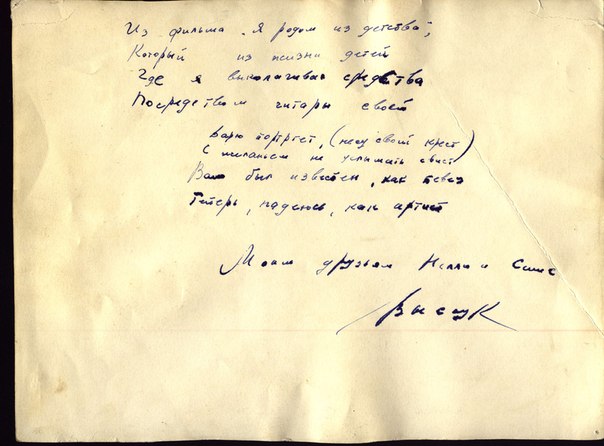 Из фильма "Я родом из детства",
Который из жизни детей
Где я выколачивал средства
Посредством гитары своей
Дарю портрет, (несу свой крест)
С желаньем не услышать свист
Вам был известен, как певец
Теперь, надеюсь, как артист
Моим друзьям Нелли и Симе
Высоцк